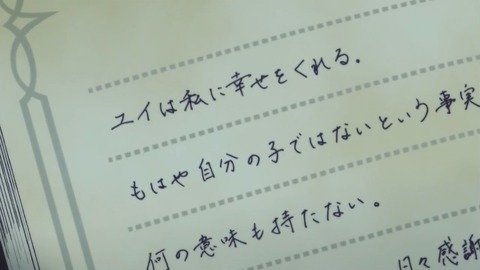 ユイは私に幸せをくれる.
もはや自分の子ではないという事実
何の意味も持たない。
日々感謝